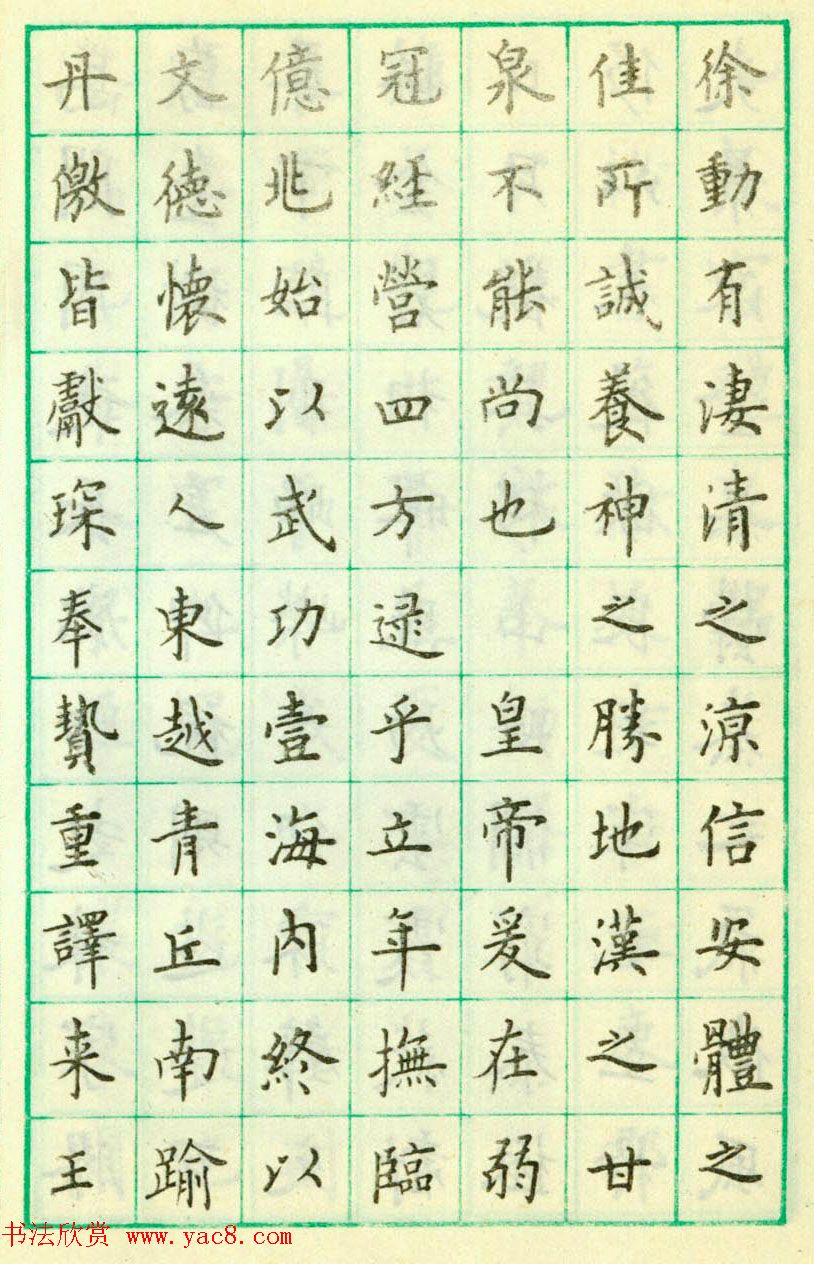 徐動有淒清之涼信安體之
佳所誠養神之勝地漢之甘
泉不能尚也 皇帝爰在弱
冠經營四方逯乎立年撫臨
億兆始以武功壹海內終以
文德懷遠人東越青丘南踰
丹徼皆獻琛奉贄重譯来王
书法欣赏 www.yac8.com